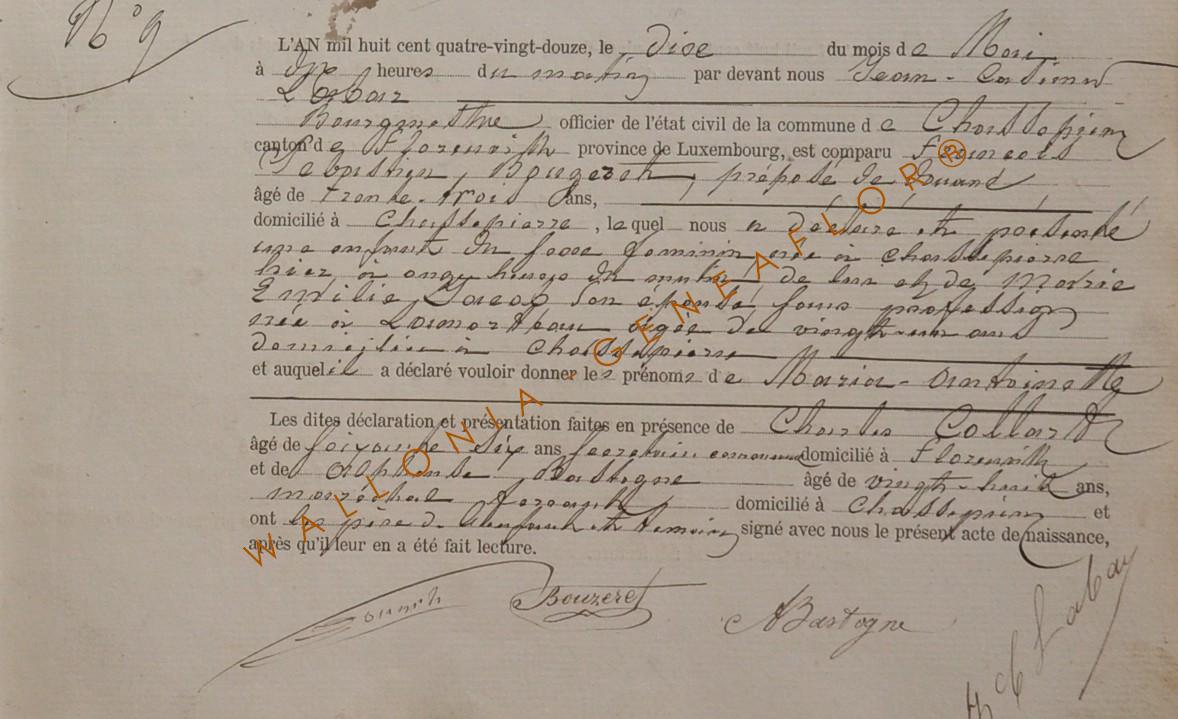 N° 9
L'AN mil huit cent quatre-vingt-douze, le dixe du mois de Mai
à dix heures du matin par devant nous Jean-
Labar
Bourgmestre officier de l'état civil de la commune de Chassepierre
canton de Florenville province de Luxembourg, est comparu François
Sébastien, Bouzeret, préposé de douane
âgé de trente-trois ans,
domicilié à Chassepierre, lequel nous a déclaré et présenté
une enfant du sexe féminin née à Chassepierre
hier à onze heures du matin de lui et de Marie
Emilie, Jacob son épouse sans profession
née à âgée de vingt-un ans
domiciliée à Chassepierre
et auquel il a déclaré vouloir donner les prénoms de Maria-Antoinette
Les dites déclaration et présentation faites en présence de Charles Collard
âgé de soixante six ans secrétaire communal domicilié à Florenville
et de Alphonse Bastogne âgé de vingt-huit ans,
maréchal ferrant domicilié à Chassepierre et
ont les père de l'enfant et témoins signé avec nous le présent acte de naissance,
après qu'il leur en a été fait lecture.
Bouzeret
ABastogne
Labar
WALLONIA-GENEAFLOR®